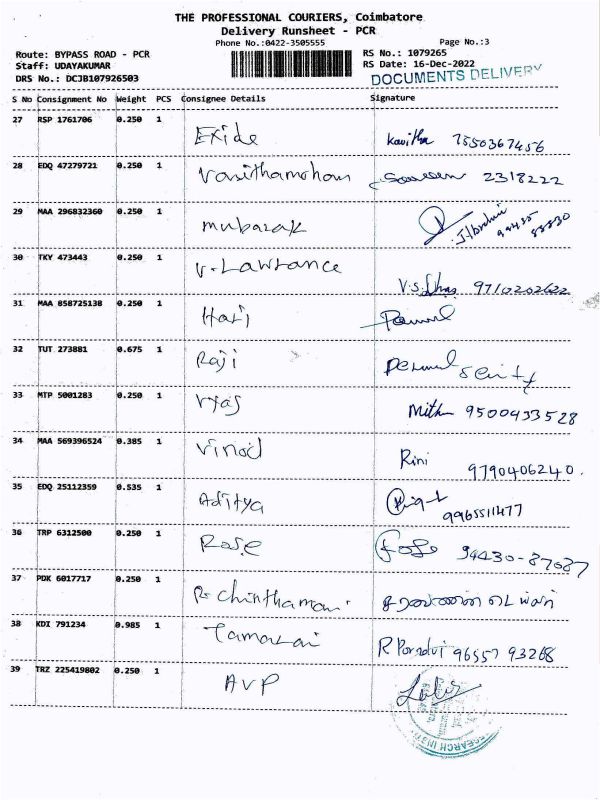 THE PROFESSIONAL COURIERS, Coimbatore
Delivery Runsheet - PCR
Phone No.:0422-3505555
Page No.:3
Route: BYPASS ROAD - PCR
RS No.: 1079265
Staff: UDAYAKUMAR
RS Date: 16-Dec-2022
DRS No.: DCJB107926503
DOCUMENTS DELIVERY
S No Consignment No Weight PCS Consignee Details Signature
27 RSP 1761706 0.250 1 Exide Kavitha 7550367456
28 EDQ 47279721 0.250 1 Vasithamohan 2318222
29 MAA 296832360 0.250 1 mubarak
30 TKY 473443 0.250 1 V. Lawrance V.S. 9710202622
31 MAA 858725138 0.250 1 Hari
32 TUT 273881 0.675 1 Raji
33 MTP 5001283 0.250 1 Vyas Mith 9500433528
34 MAA 569396524 0.385 1 Vinod Rini 9790406240.
35 EDQ 25112359 0.535 1 Aditya 9965511477
36 TRP 6312500 0.250 1 Rose 94430-87087
37 PDK 6017717 0.250 1 R. Chinthamani
38 KDI 791234 0.985 1 Tamarai R 96557 93268
39 TRZ 225419802 0.250 1 AVP